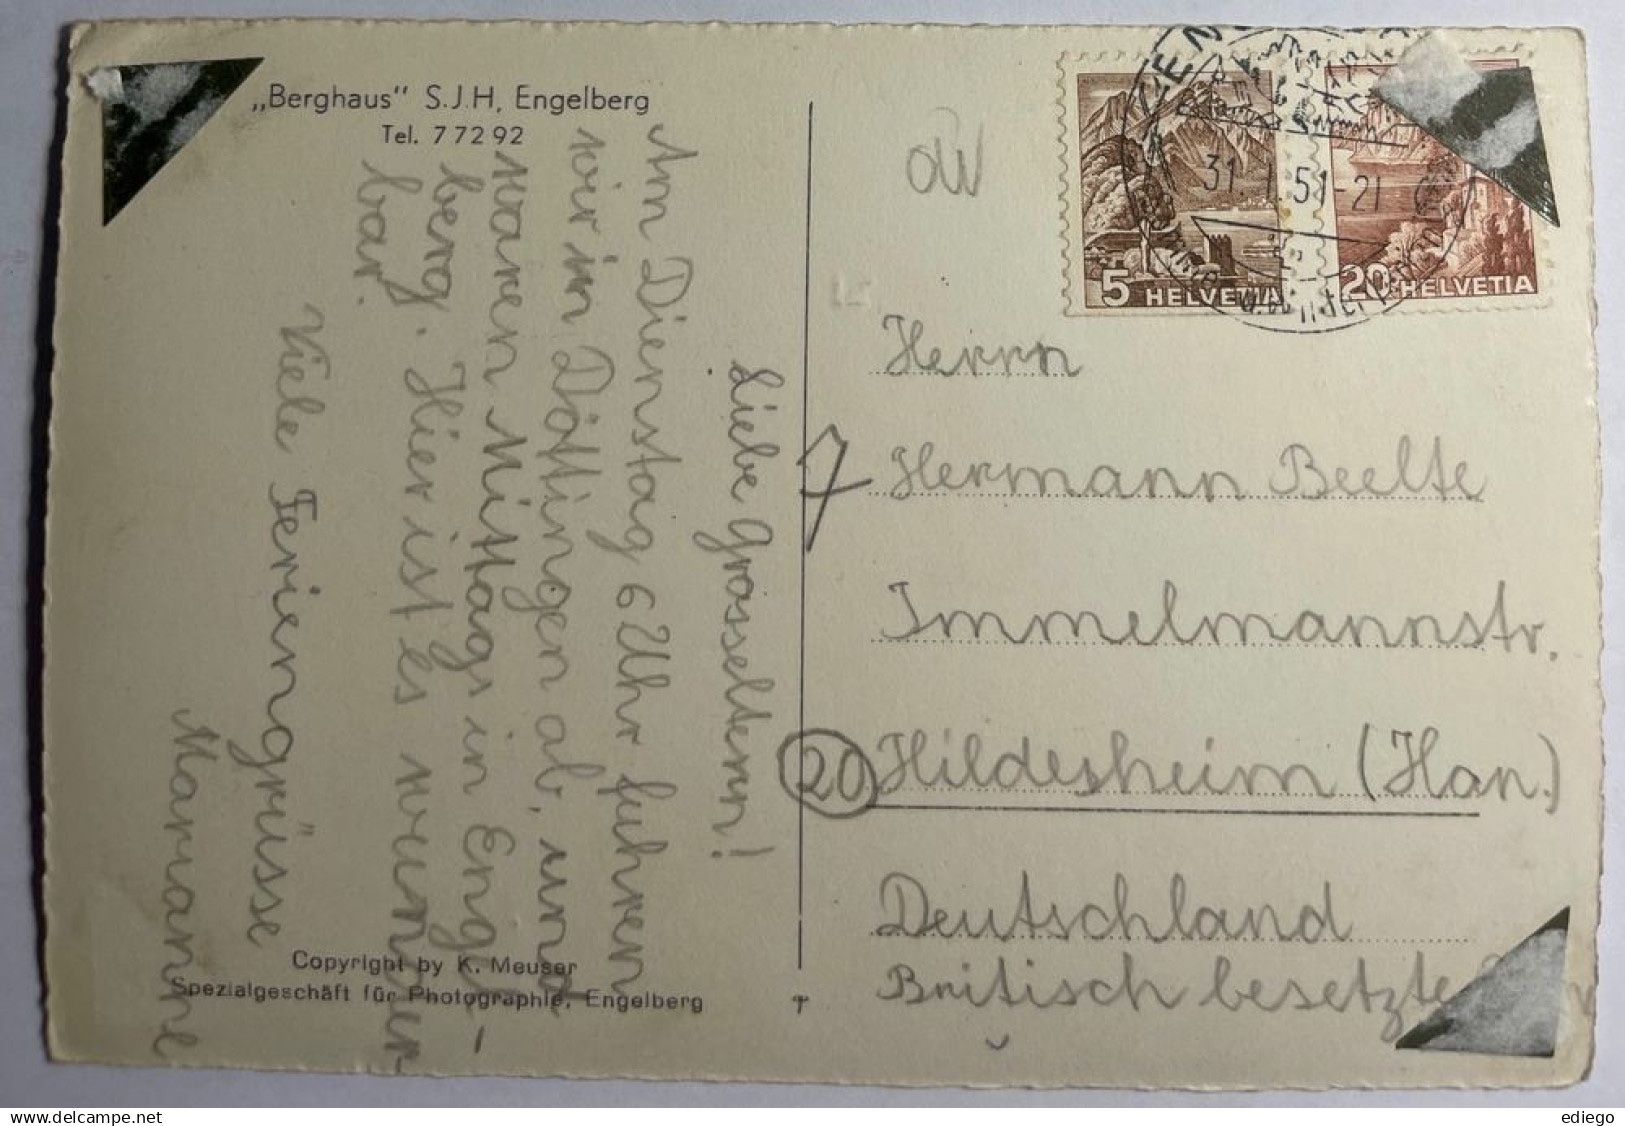 „Berghaus" S.J.H, Engelberg
Tel. 7 72 92
Liebe Grosseltern!
Am Dienstag 6 Uhr fuhren
wir in Döttingen ab, und
waren Mittags in Engel-
berg. Hier ist es wunder-
bar.
Viele Feriengrüsse
Marianne
Copyright by K. Meuser
Spezialgeschäft für Photographie, Engelberg
5 HELVETIA
20 HELVETIA
31. 51-21
Herrn
7
Hermann Beelte
Immelmannstr.
20 Hildesheim (Han.)
Deutschland
Britisch besetzte
delcampe.net
ediego